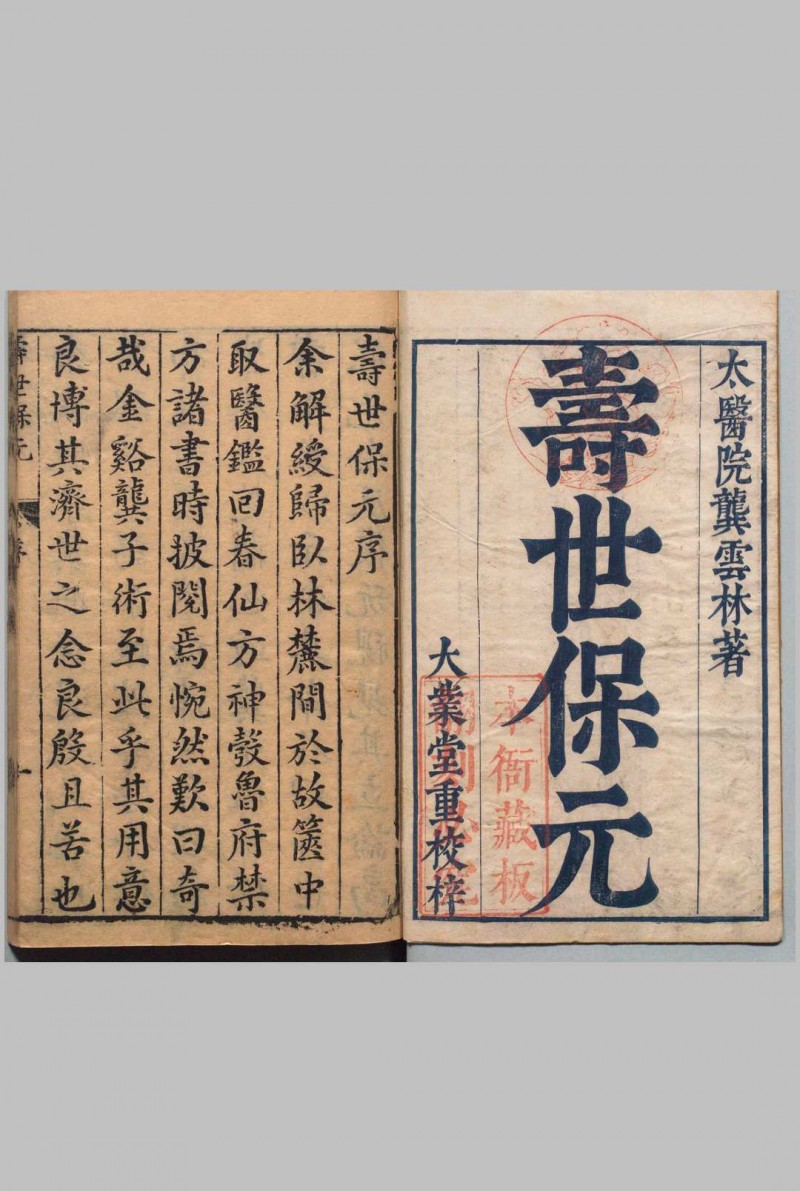 太醫院龔雲林著
壽世保元
大業堂重校梓
本衙藏板
壽世保元序
余解綬歸臥林麓間於故篋中
取醫鑑回春仙方神彀魯府禁
方諸書時披閱焉惋然歎曰奇
哉金谿龔子術至此乎其用意
良博其濟世之念良殷且苦也
壽世保元
序
一